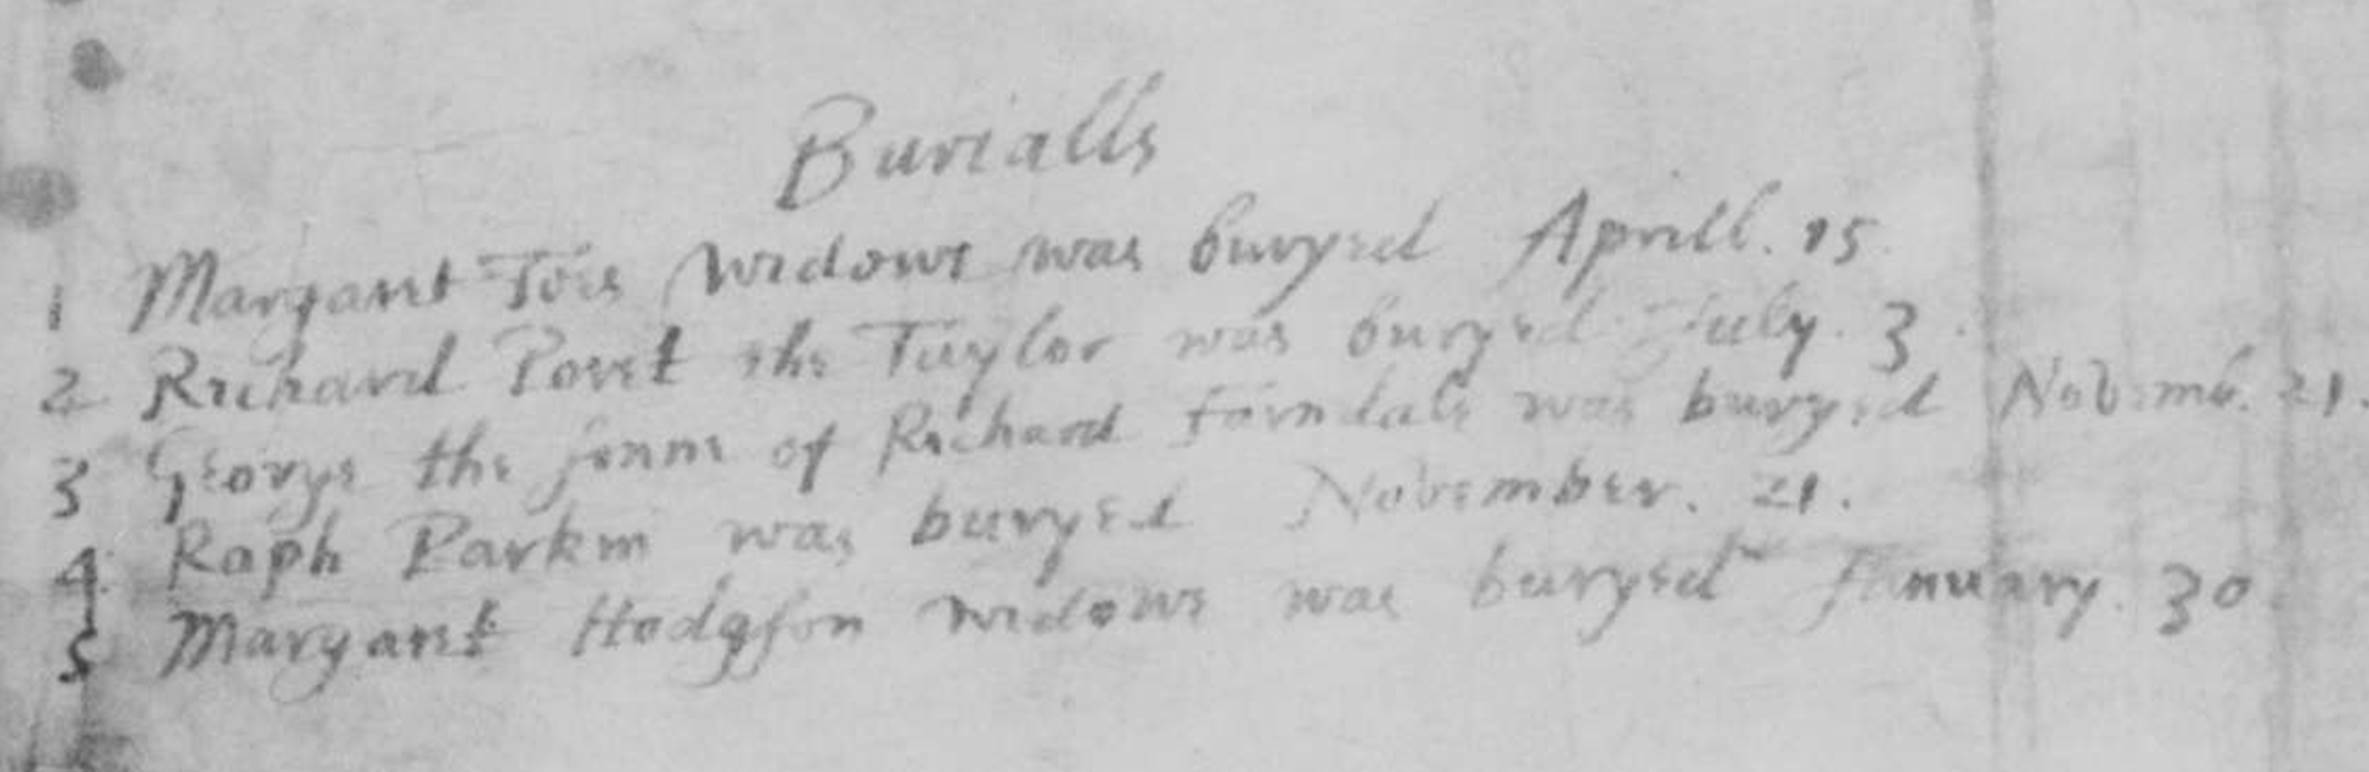 Burialls
1 Margaret Tose Widowe was buryed Aprill. 15.
2 Richard Poret the Taylor was buryed July. 3.
3 George the sonne of Richard Farndale was buryed Novemb. 21.
4 Raph Parkin was buryed November. 21.
5 Margaret Hodgson widowe was buryed January. 30